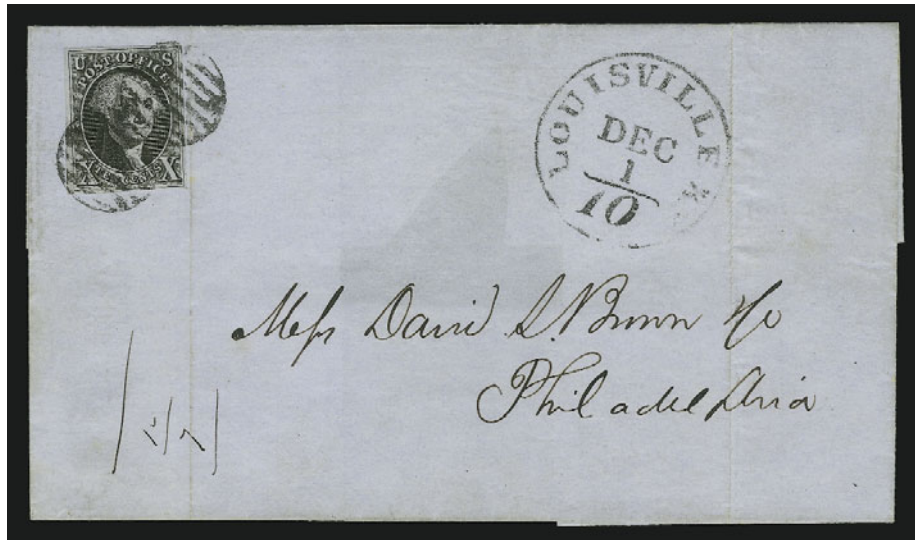 U S
POST OFFICE
X TEN CENTS X
LOUISVILLE K
DEC
1
10
Mess David S. Brown & Co
Philadelphia